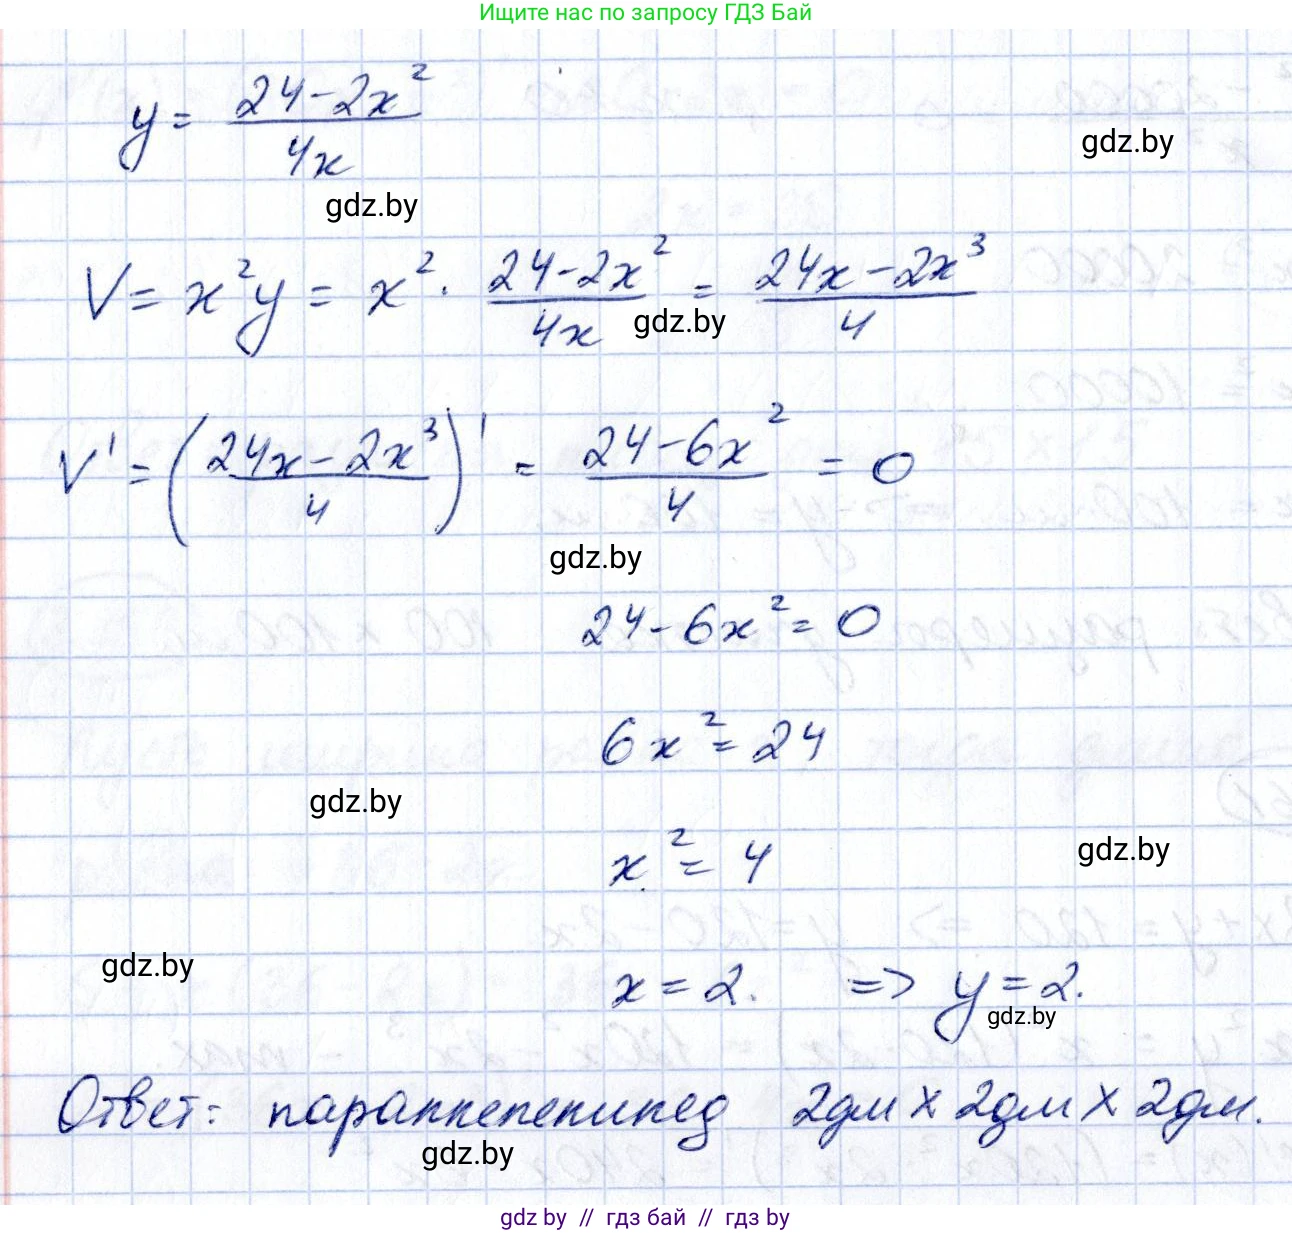 Ищите нас по запросу ГДЗ Бай
y = (24-2x²)/(4x)
gdz.by
gdz.by
V = x²y = x² · (24-2x²)/(4x) = (24x-2x³)/4
gdz.by
V' = ((24x-2x³)/4)' = (24-6x²)/4 = 0
gdz.by
24-6x² = 0
6x² = 24
gdz.by
x² = 4
gdz.by
gdz.by
x = 2. => y = 2.
gdz.by
Ответ: параллелепипед 2дм x 2дм x 2дм.
gdz.by
gdz by // гдз бай // гдз by